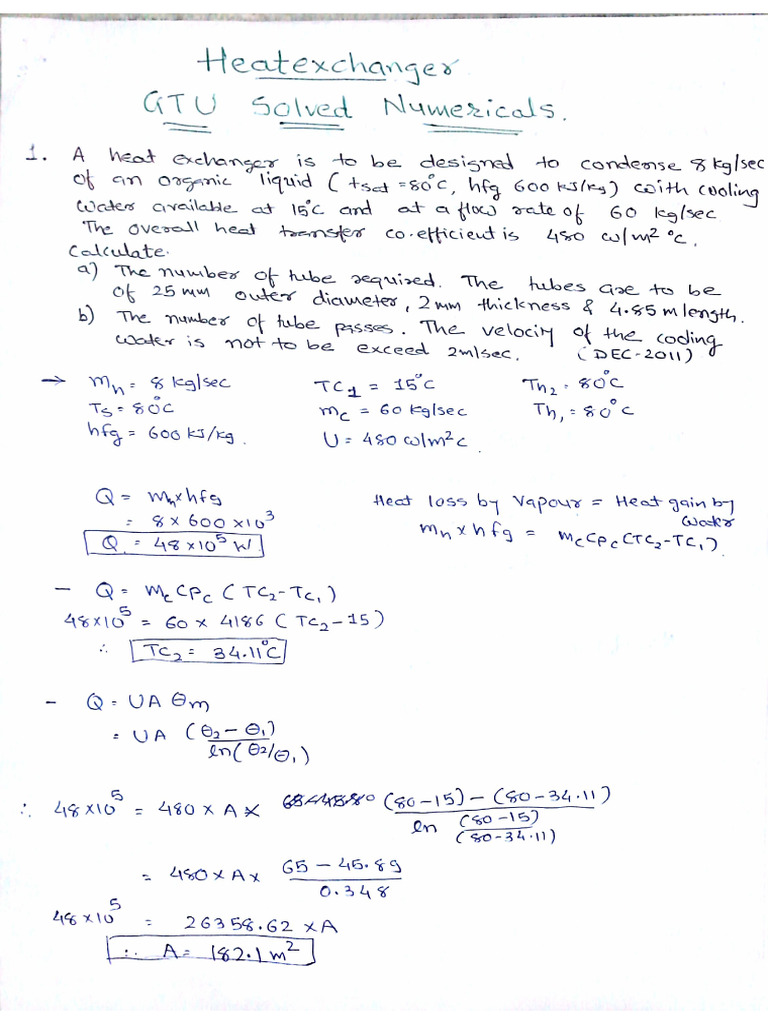 Heatexchanger
GTU Solved Numericals.
1. A heat exchanger is to be designed to condense 8 kg/sec
of an organic liquid (tsat = 80°C, hfg 600 kJ/kg) with cooling
water available at 15°C and at a flow rate of 60 kg/sec
The overall heat transfer co-efficient is 480 w/m² °c.
Calculate.
a) The number of tube required. The tubes are to be
of 25 mm outer diameter, 2 mm thickness & 4.85 m length.
b) The number of tube passes. The velocity of the coding
water is not to be exceed 2m/sec. (DEC-2011)
→ mh = 8 kg/sec TC1 = 15°C Th2 = 80°C
Ts = 80°C mc = 60 kg/sec Th1 = 80°C
hfg = 600 kJ/kg. U = 480 w/m²c.
Q = mh×hfg Heat loss by vapour = Heat gain by
water
= 8 × 600 ×10³ mh × hfg = mc CPc (TC2-TC1)
Q = 48×10⁵ W
- Q = mc CPc (TC2-TC1)
48×10⁵ = 60 × 4186 (TC2-15)
∴ TC2 = 34.11°C
- Q = UA θm
= UA (θ2 - θ1) / ln(θ2/θ1)
∴ 48×10⁵ = 480 × A × (80-15) - (80-34.11) / ln (80-15)/(80-34.11)
= 480 × A × 65 - 45.89 / 0.348
48×10⁵ = 26358.62 × A
∴ A = 182.1 m²